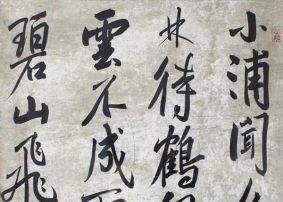 小浦聞
林待鶴
雲不成
碧山飛